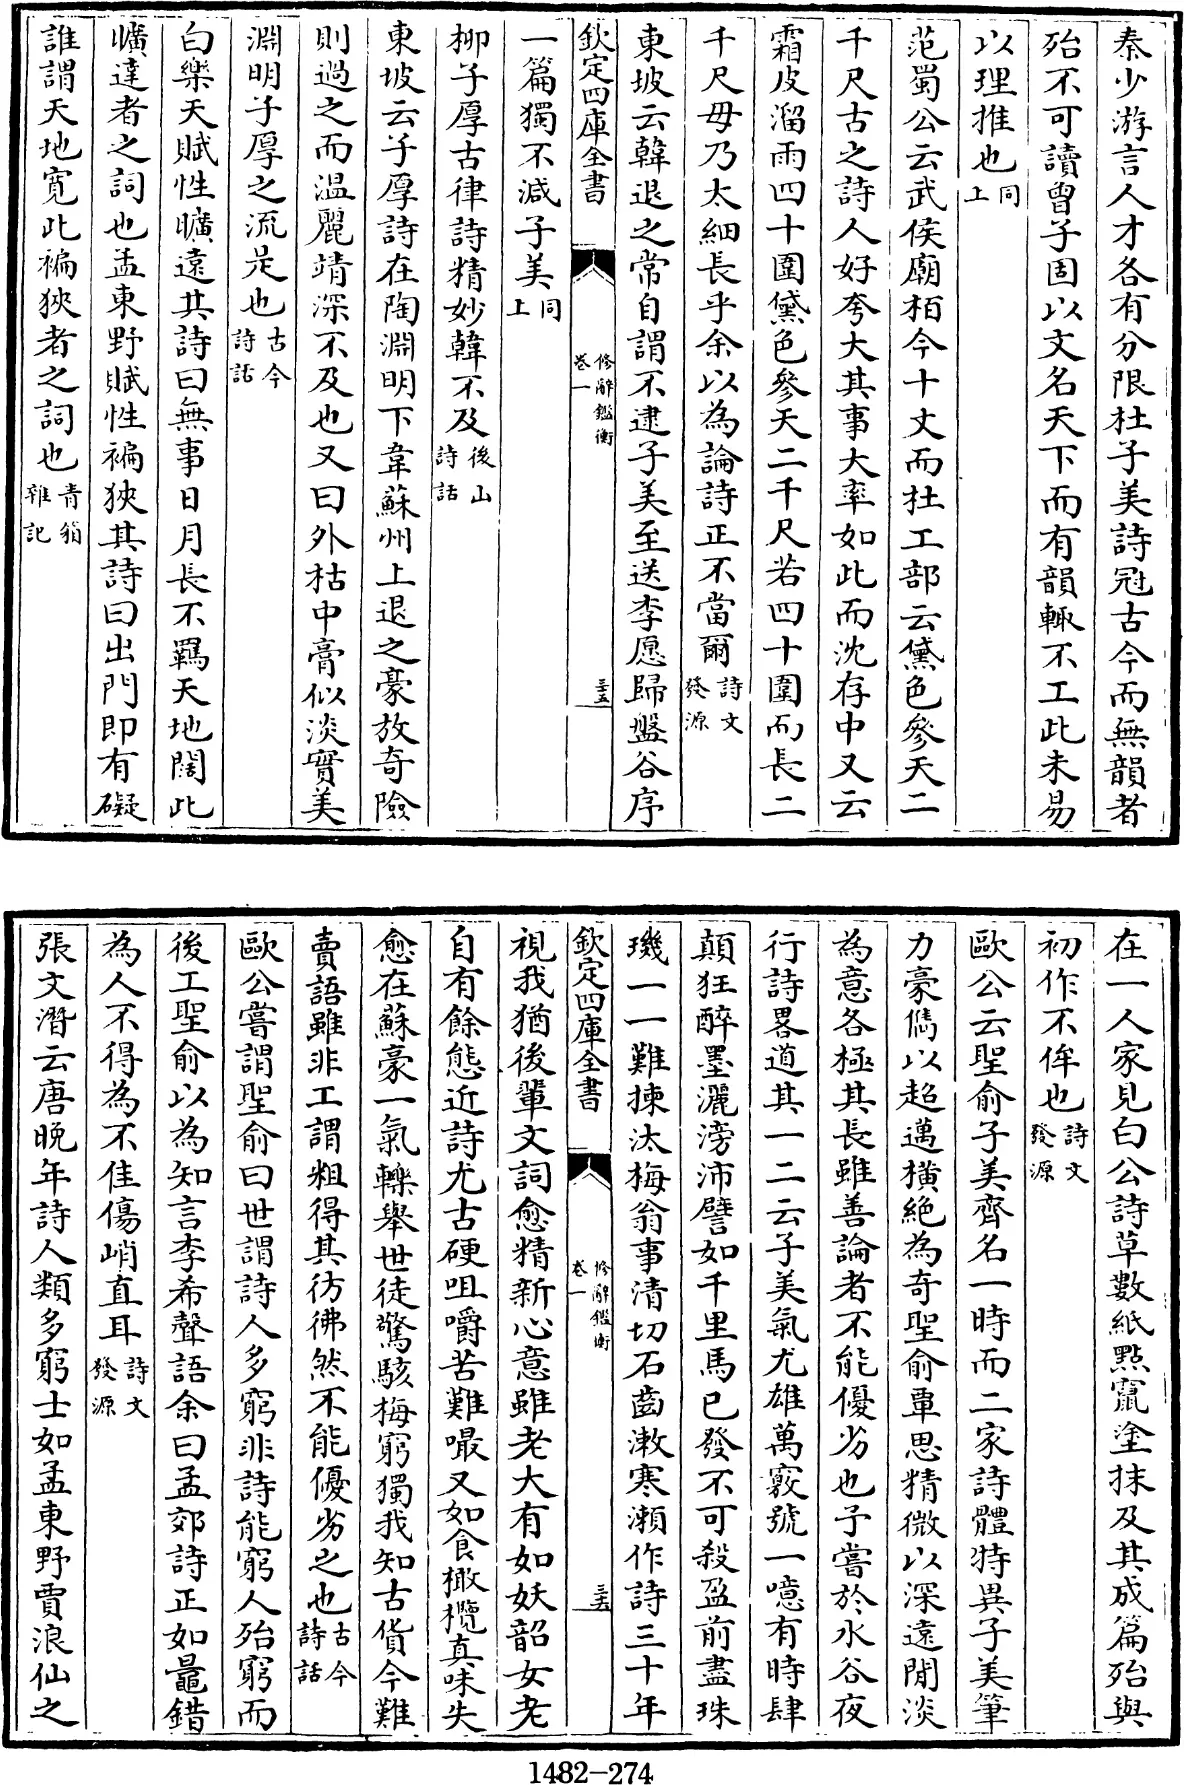 秦少游言人才各有分限杜子美詩冠古今而無韻者
殆不可讀曾子固以文名天下而有韻輙不工此未易
以理推也同上
范蜀公云武侯廟栢今十丈而杜工部云黛色參天二
千尺古之詩人好夸大其事大率如此而沈存中又云
霜皮溜雨四十圍黛色參天二千尺若四十圍而長二
千尺毋乃太細長乎余以為論詩正不當爾詩文發源
東坡云韓退之常自謂不逮子美至送李愿歸盤谷序
欽定四庫全書 修辭鑑衡 卷一 三五
一篇獨不減子美同上
柳子厚古律詩精妙韓不及後山詩話
東坡云子厚詩在陶淵明下韋蘇州上退之豪放奇險
則過之而温麗靖深不及也又曰外枯中膏似淡實美
淵明子厚之流是也古今詩話
白樂天賦性曠遠其詩曰無事日月長不羈天地闊此
曠達者之詞也孟東野賦性褊狹其詩曰出門即有礙
誰謂天地寛此褊狹者之詞也青箱雜記
在一人家見白公詩草數紙點竄塗抹及其成篇殆與
初作不侔也詩文發源
歐公云聖俞子美齊名一時而二家詩體特異子美筆
力豪儁以超邁橫絶為奇聖俞覃思精微以深遠閒淡
為意各極其長雖善論者不能優劣也予嘗於水谷夜
行詩畧道其一二云子美氣尤雄萬竅號一噫有時肆
顛狂醉墨灑滂沛譬如千里馬已發不可殺盈前盡珠
璣一一難揀汰梅翁事清切石齒漱寒瀨作詩三十年
欽定四庫全書 修辭鑑衡 卷一
視我猶後輩文詞愈精新心意雖老大有如妖韶女老
自有餘態近詩尤古硬咀嚼苦難嘬又如食橄欖真味失
愈在蘇豪一氣轢舉世徒驚駭梅窮獨我知古貨今難
賣語雖非工謂粗得其彷彿然不能優劣之也古今詩話
歐公嘗謂聖俞曰世謂詩人多窮非詩能窮人殆窮而
後工聖俞以為知言李希聲語余曰孟郊詩正如鼂錯
為人不得為不佳傷峭直耳詩文發源
張文潛云唐晚年詩人類多窮士如孟東野賈浪仙之
1482-274